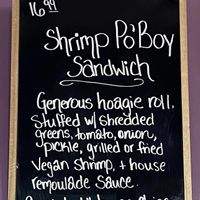 16.99
Shrimp Po'Boy
Sandwich
Generous hoagie roll.
Stuffed w/ shredded
greens, tomato, onion,
pickle, grilled or fried
Vegan Shrimp, + house
remoulade sauce.